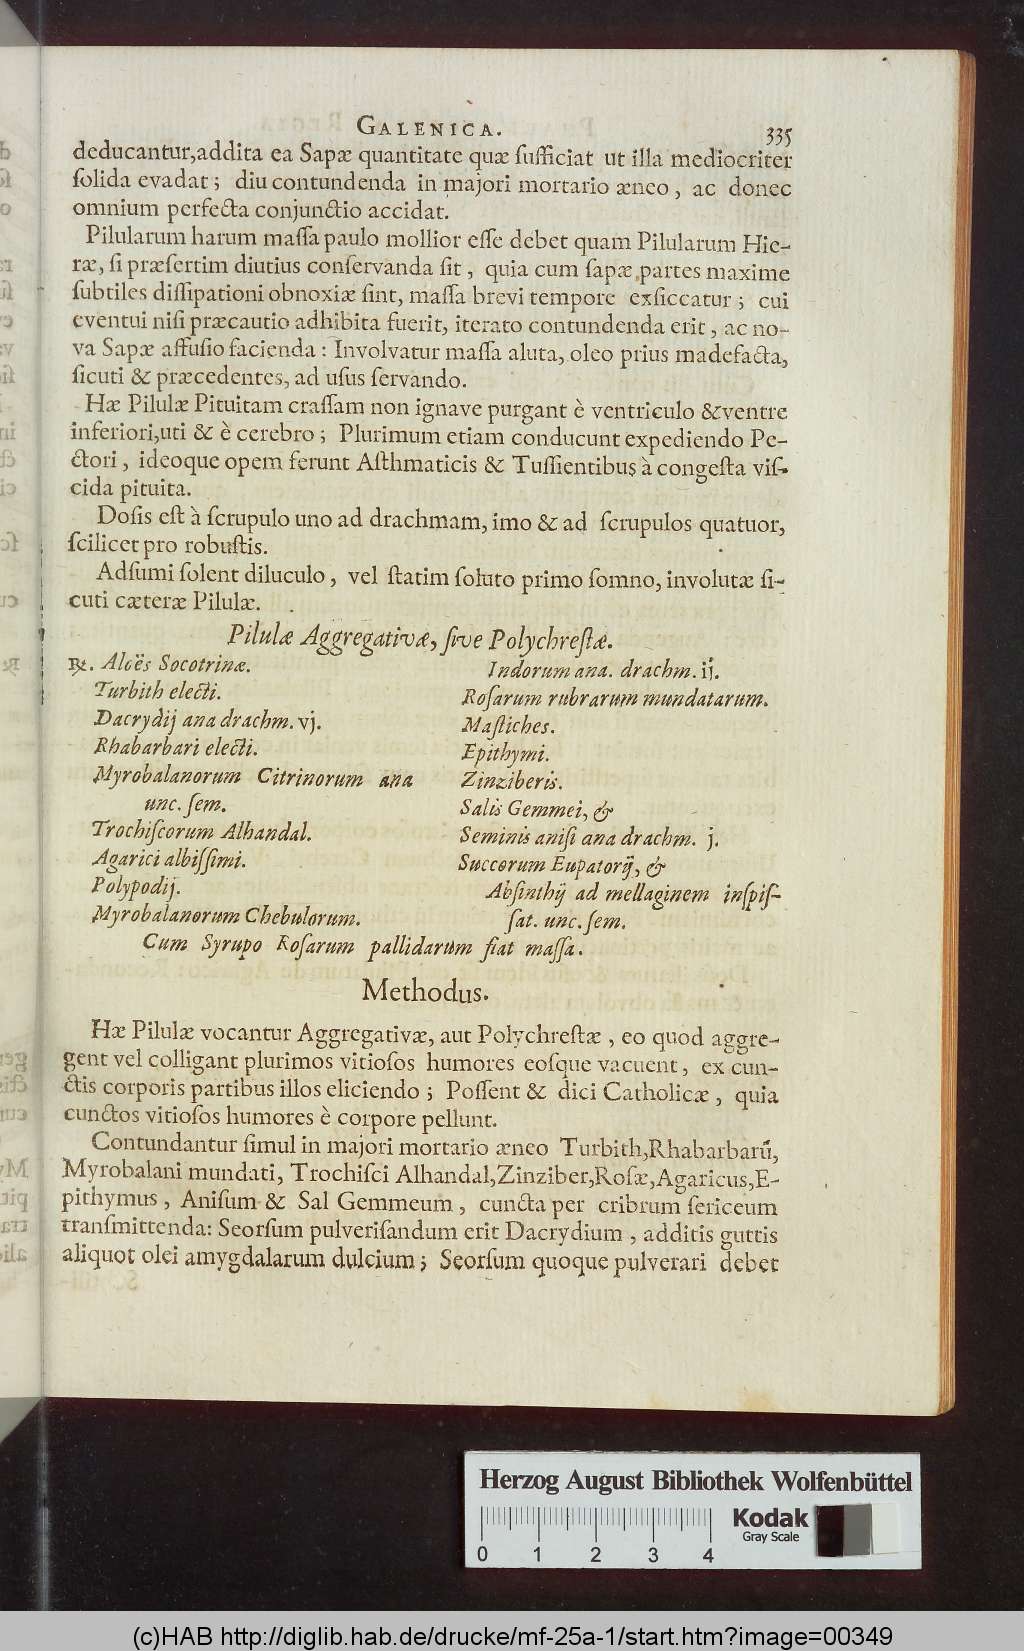 GALENICA. 335
deducantur,addita ea Sapæ quantitate quæ ſufficiat ut illa mediocriter
ſolida evadat ; diu contundenda in majori mortario æneo , ac donec
omnium perfecta conjunctio accidat.
Pilularum harum maſſa paulo mollior eſſe debet quam Pilularum Hie-
ræ, ſi præſertim diutius conſervanda ſit , quia cum ſapæ partes maxime
ſubtiles diſſipationi obnoxiæ ſint, maſſa brevi tempore exſiccatur ; cui
eventui niſi præcautio adhibita fuerit, iterato contundenda erit , ac no-
va Sapæ affuſio facienda : Involvatur maſſa aluta, oleo prius madefacta,
ſicuti & præcedentes, ad uſus ſervando.
Hæ Pilulæ Pituitam craſſam non ignave purgant è ventriculo &ventre
inferiori,uti & è cerebro ; Plurimum etiam conducunt expediendo Pe-
ctori , ideoque opem ferunt Aſthmaticis & Tuſſientibus à congeſta viſ-
cida pituita.
Doſis eſt à ſcrupulo uno ad drachmam, imo & ad ſcrupulos quatuor,
ſcilicet pro robuſtis.
Adſumi ſolent diluculo , vel ſtatim ſoluto primo ſomno, involutæ ſi-
cuti cæteræ Pilulæ.
Pilulæ Aggregativæ, ſive Polychreſtæ.
℞. Aloës Socotrinæ.
Turbith electi.
Dacrydij ana drachm. vj.
Rhabarbari electi.
Myrobalanorum Citrinorum ana
unc. ſem.
Trochiſcorum Alhandal.
Agarici albiſſimi.
Polypodij.
Myrobalanorum Chebulorum.
Indorum ana. drachm. ij.
Roſarum rubrarum mundatarum.
Maſtiches.
Epithymi.
Zinziberis.
Salis Gemmei, &
Seminis aniſi ana drachm. j.
Succorum Eupatorij, &
Abſinthij ad mellaginem inſpiſ-
ſat. unc. ſem.
Cum Syrupo Roſarum pallidarum fiat maſſa.
Methodus.
Hæ Pilulæ vocantur Aggregativæ, aut Polychreſtæ , eo quod aggre-
gent vel colligant plurimos vitioſos humores eoſque vacuent , ex cun-
ctis corporis partibus illos eliciendo ; Poſſent & dici Catholicæ , quia
cunctos vitioſos humores è corpore pellunt.
Contundantur ſimul in majori mortario æneo Turbith,Rhabarbarũ,
Myrobalani mundati, Trochiſci Alhandal,Zinziber,Roſæ,Agaricus,E-
pithymus , Aniſum & Sal Gemmeum , cuncta per cribrum ſericeum
tranſmittenda: Seorſum pulveriſandum erit Dacrydium , additis guttis
aliquot olei amygdalarum dulcium ; Seorſum quoque pulverari debet
Herzog August Bibliothek Wolfenbüttel
Kodak
Gray Scale
0 1 2 3 4
(c)HAB http://diglib.hab.de/drucke/mf-25a-1/start.htm?image=00349